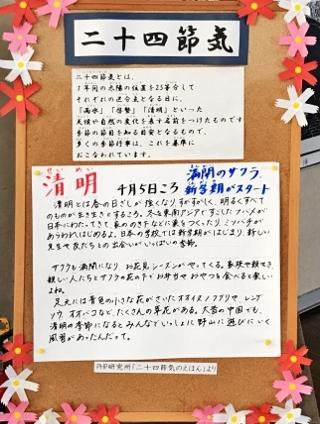 二十四節気
二十四節気とは、
1年間の太陽の位置を25等分して
それぞれの区分点となる日に、
「雨水」「啓蟄」「清明」といった
天候や自然の変化を表す名前をつけたものです
季節の節目を知る目安となるもので、
多くの季節行事は、これを基準に
おこなわれています。
せい めい
清明
4月5日ころ
満開のサクラ、
新学期がスタート
清明とは春の日ざしが強くなり、すがすがしく、明るくすべて
のものが生き生きとするころ。冬を東南アジアですごしたツバメが
日本にわたってきて、家ののき下に巣をつくったり、ミツバチが
あらわれはじめるよ。日本の学校では新学期がはじまり、新しい
先生や友だちとの出会いがいっぱいの季節。
サクラも満開になり、お花見シーズンがやってくる。家族や親せき、
親しい人たちとサクラの花の下でお弁当やおやつを食べると楽しい
よね。
足元には青色の小さな花がさいたオオイヌノフグリや、レンゲ
ソウ、オオバコなど、たくさんの草花がある。大昔の中国でも、
清明の季節になるとみんなでいっしょに野山に遊びにいく
風習があったんだって。
PHP研究所「二十四節気のえほん」より